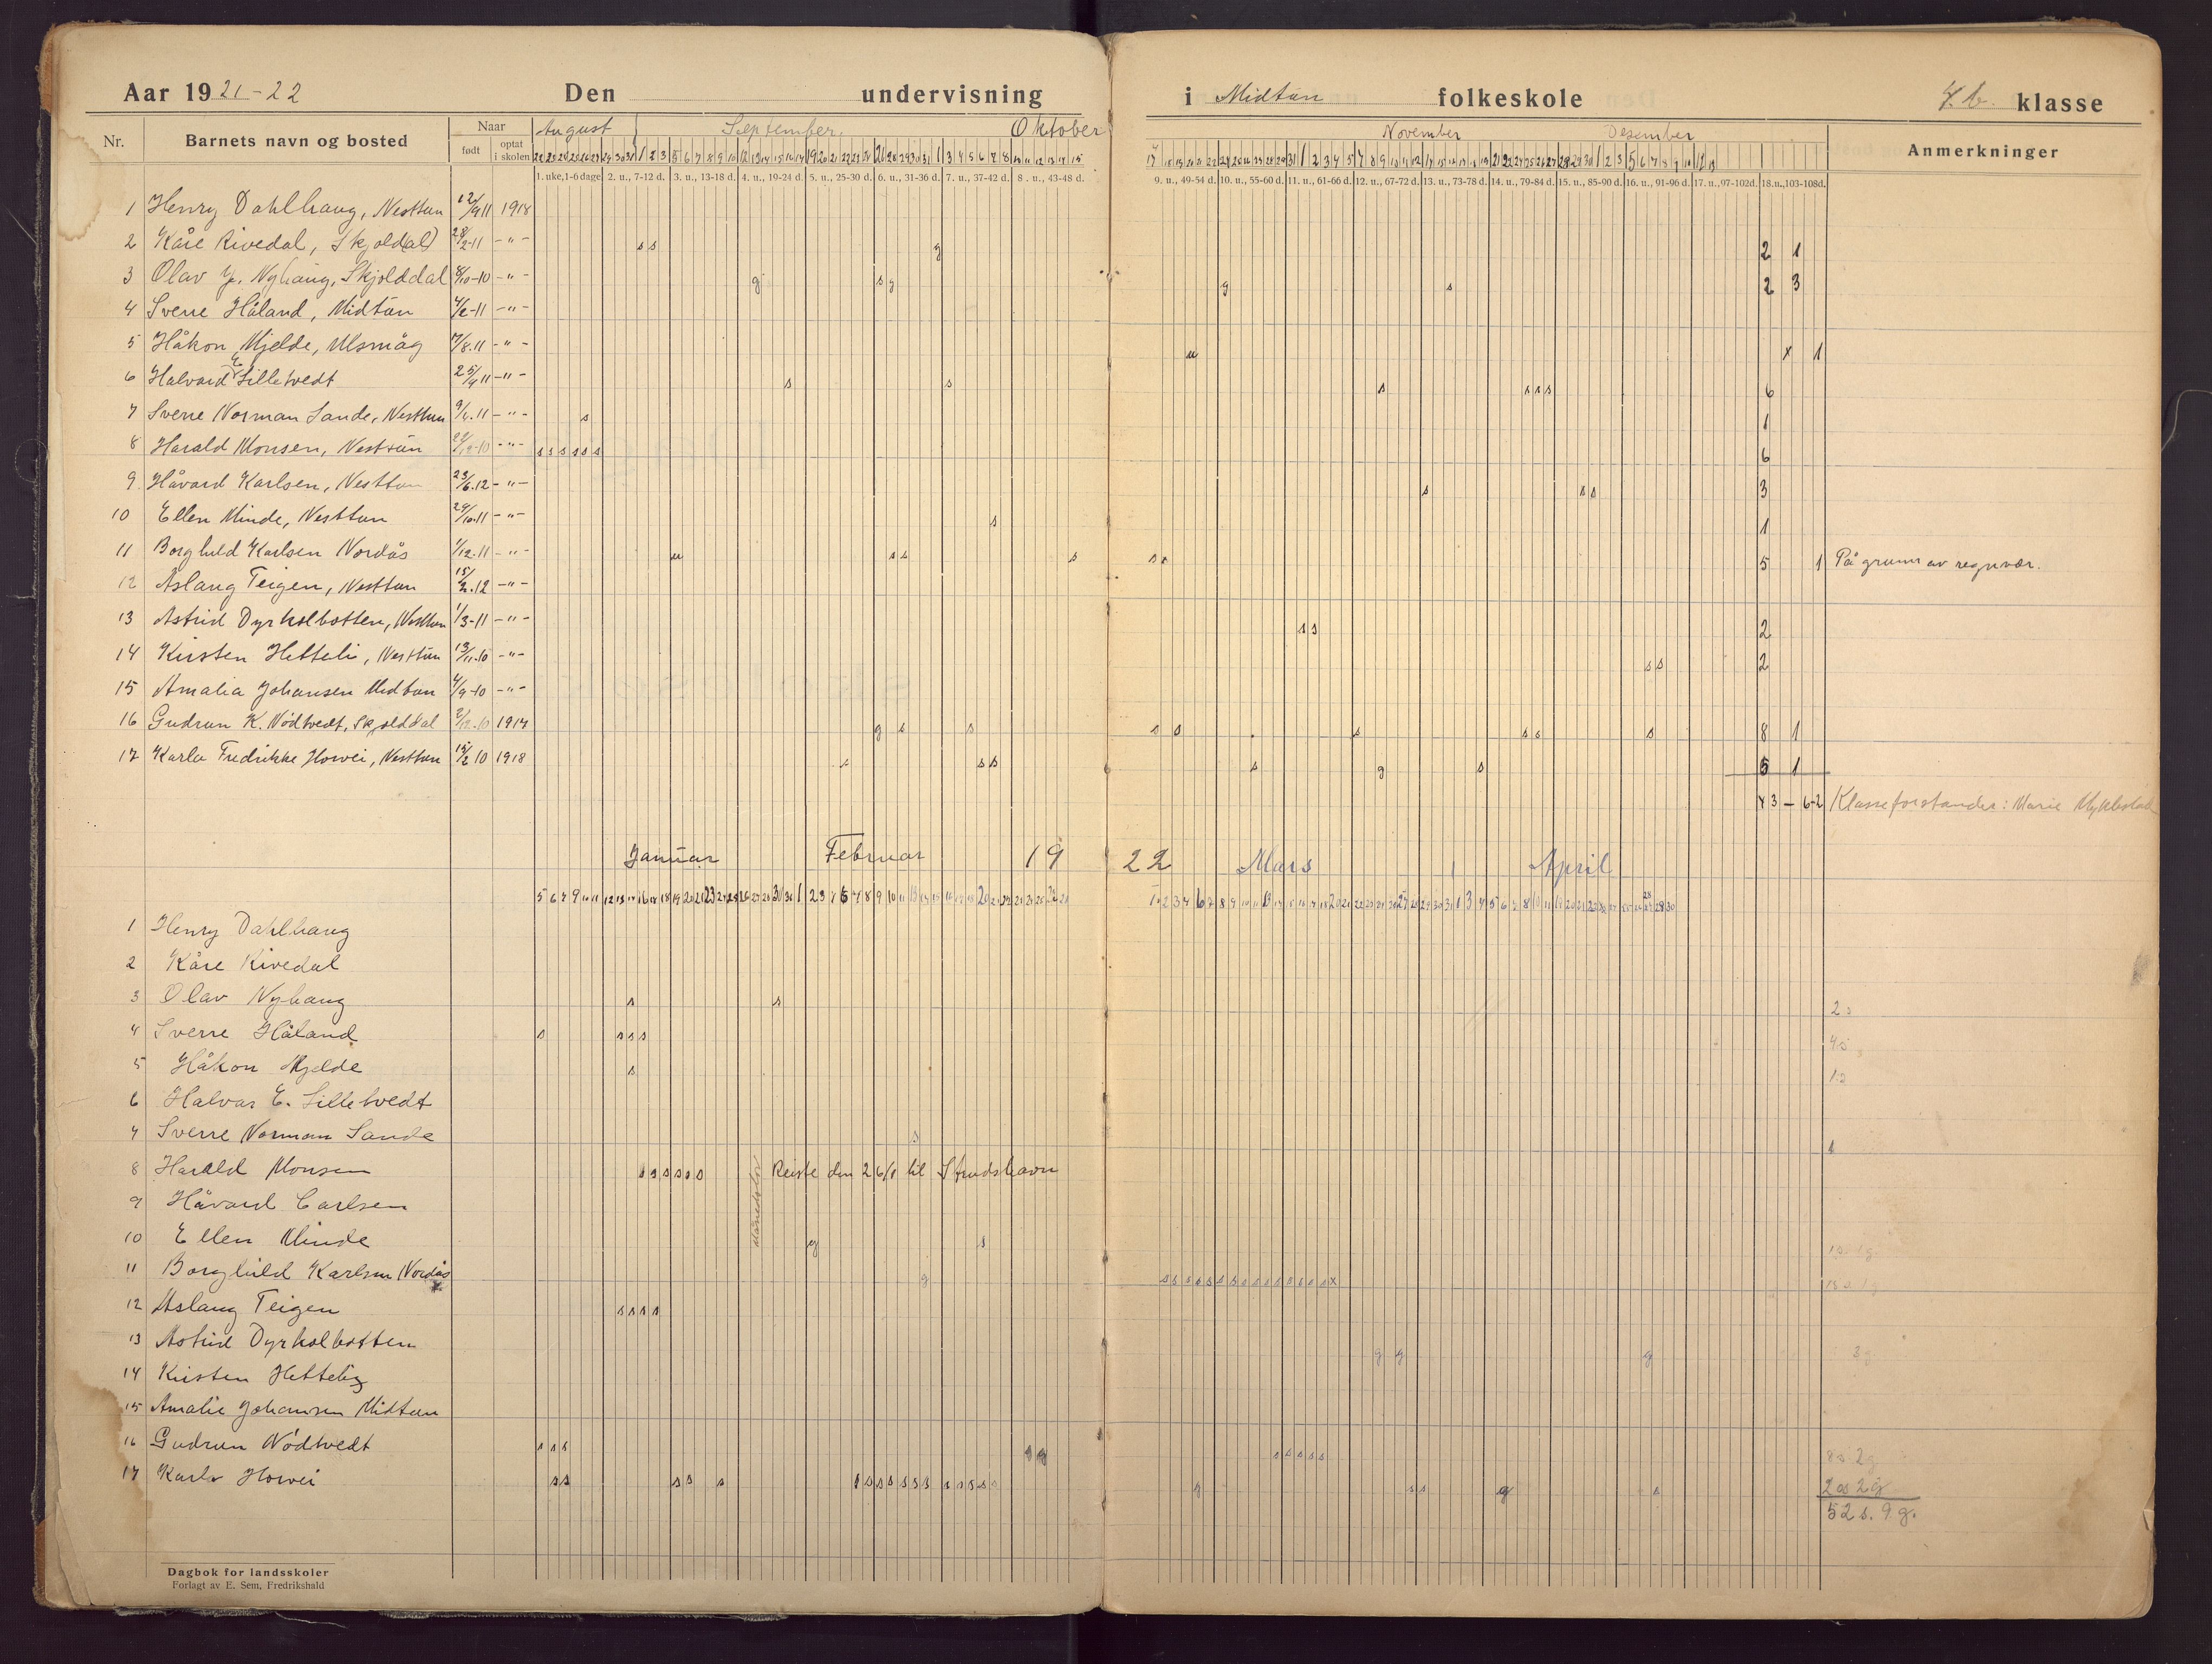 Aar 1921-22 Den undervisning i Midtun folkeskole 4.b. klasse
Nr. Barnets navn og bosted Naar født optat i skolen August September. Oktober November Desember Anmerkninger
1. uke, 1-6 dage. 2. u., 7-12 d. 3. u., 13-18 d. 4. u., 19-24 d. 5. u., 25-30 d. 6. u., 31-36 d. 7. u., 37-42 d. 8. u., 43-48 d. 9. u., 49-54 d. 10. u., 55-60 d. 11. u., 61-66 d. 12. u., 67-72 d. 13. u., 73-78 d. 14. u., 79-84 d. 15. u., 85-90 d. 16. u., 91-96 d. 17. u., 97-102 d. 18. u., 103-108 d.
1 Henry Dahlhaug, Nesttun 12/9 11 1918
2 Kåre Rivedal, Skjoldal 28/2-11 -"- s s g 2 1
3 Olav J. Nyhaug, Skjolddal 8/10-10 -"- g s g g s 2 3
4 Sverre Håland, Midtun 4/2-11 -"-
5 Håkon Mjelde, Ulsmåg 7/8.11 -"- u x 1
6 Halvard E. Lilletvedt 25/9 11 -"- s s s s s s 6
7 Sverre Norman Sande, Nesttun 9/4.11 -"- s 1
8 Harald Monsen, Nesttun -"- s s s s s s 6
9 Håvard Karlsen, Nesttun 23/6.12 -"- s s s 3
10 Ellen Minde, Nesttun 29/10.11 -"- s 1
11 Borghild Karlsen Nordås 1/12.11 -"- u s s s s s 5 1 På grunn av regnvær.
12 Aslaug Teigen, Nesttun 15/2.12 -"-
13 Astrid Dyrkolbotten, Nesttun 1/3-11 -"- s s 2
14 Kirsten Hetteli, Nesttun 13/11.10 -"- s s 2
15 Amalia Johansen Midtun 4/9-10 -"-
16 Gudrun K. Nødtvedt, Skjolddal 1917 g s s s s s s s s 8 1
17 Karla Fredrikke Howei, Nesttun 14/2 10 1918 s s s s g s 5 1
43 - 6-2 Klasseforstander: Marie Myklestad
Januar Februar 19 22 Mars April
1 Henry Dahlhaug
2 Kåre Rivedal
3 Olav Nyhaug s s 2 s
4 Sverre Håland s s s s 4 s
5 Håkon Mjelde s 1 s
6 Halvar E. Lilletvedt
7 Sverre Norman Sande s 1
8 Harald Monsen s s s s s s Reiste den 26/1 til Strudshavn
9 Håvard Carlsen
månedslov
10 Ellen Minde g s 1 s. 1 g.
11 Borghild Karlsen Nordås g s s s s s s s s s s s s s s s x
12 Aslaug Teigen s s s s
13 Astrid Dyrkolbotten g g g 3 g.
14 Kirsten Hetteli
15 Amalie Johansen Midtun
16 Gudrun Nødtvedt s s s g g s s s s s 8 s 2 g
17 Karla Howei s s s s s g 2 g
52 s. 9 g.
Dagbok for landsskoler
Forlagt av E. Sem, Fredrikshald